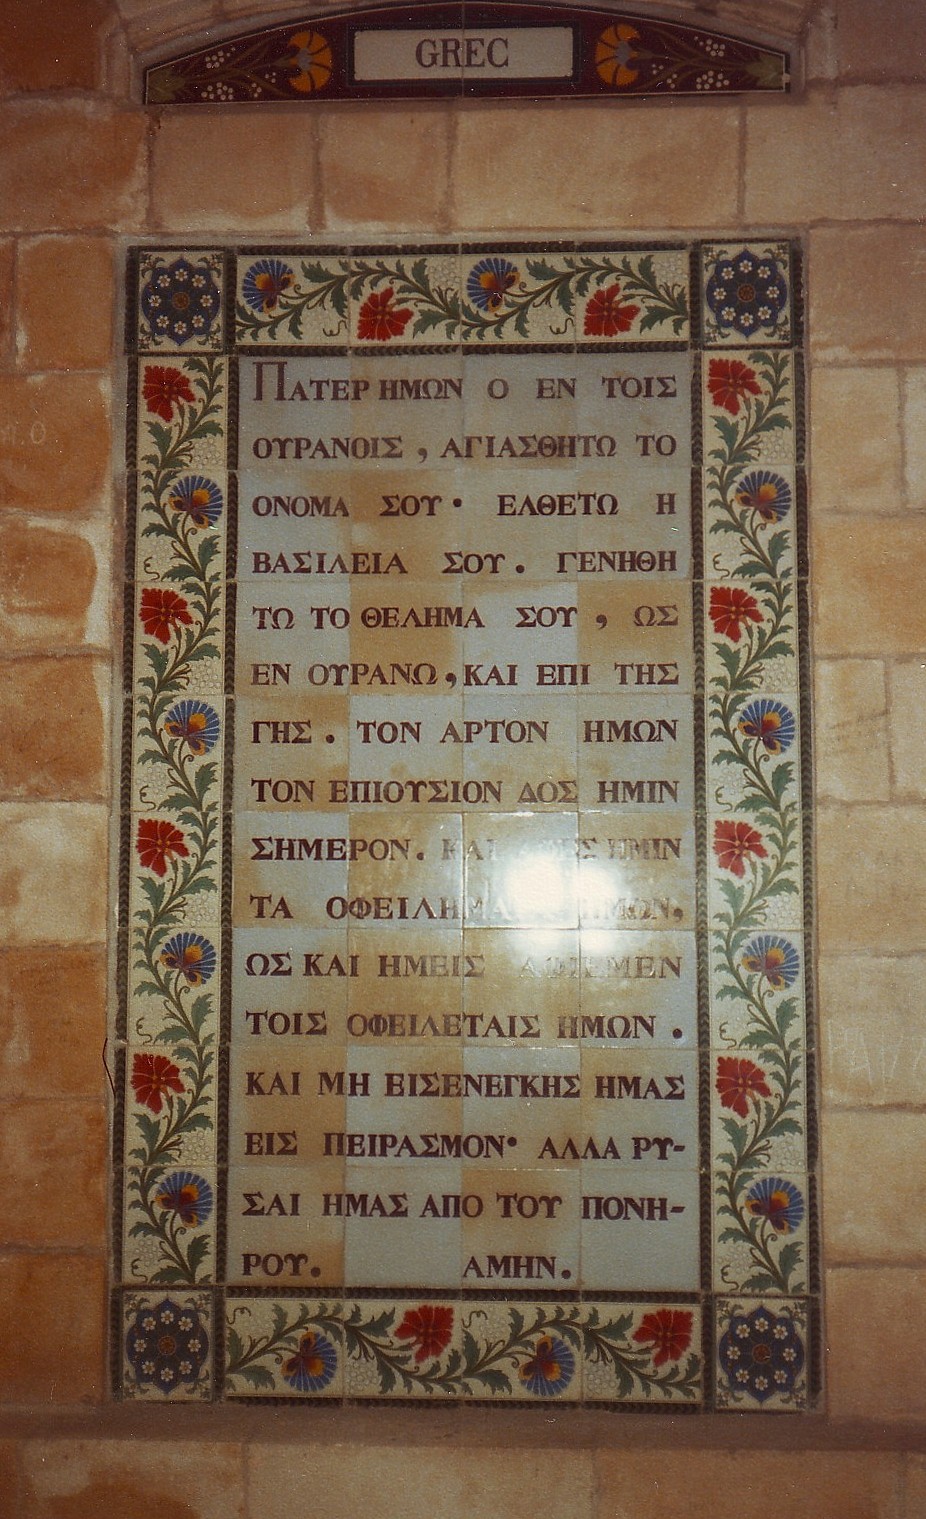 GREC
ΠΑΤΕΡ ΗΜΩΝ Ο ΕΝ ΤΟΙΣ
ΟΥΡΑΝΟΙΣ , ΑΓΙΑΣΘΗΤΩ ΤΟ
ΟΝΟΜΑ ΣΟΥ· ΕΛΘΕΤΩ Η
ΒΑΣΙΛΕΙΑ ΣΟΥ. ΓΕΝΗΘΗ
ΤΩ ΤΟ ΘΕΛΗΜΑ ΣΟΥ , ΩΣ
ΕΝ ΟΥΡΑΝΩ, ΚΑΙ ΕΠΙ ΤΗΣ
ΓΗΣ. ΤΟΝ ΑΡΤΟΝ ΗΜΩΝ
ΤΟΝ ΕΠΙΟΥΣΙΟΝ ΔΟΣ ΗΜΙΝ
ΣΗΜΕΡΟΝ. ΚΑΙ ΗΜΙΝ
ΤΑ ΗΜΩΝ,
ΩΣ ΚΑΙ ΗΜΕΙΣ ΑΦΙΕΜΕΝ
ΤΟΙΣ ΟΦΕΙΛΕΤΑΙΣ ΗΜΩΝ .
ΚΑΙ ΜΗ ΕΙΣΕΝΕΓΚΗΣ ΗΜΑΣ
ΕΙΣ ΠΕΙΡΑΣΜΟΝ· ΑΛΛΑ ΡΥ-
ΣΑΙ ΗΜΑΣ ΑΠΟ ΤΟΥ ΠΟΝΗ-
ΡΟΥ. ΑΜΗΝ.